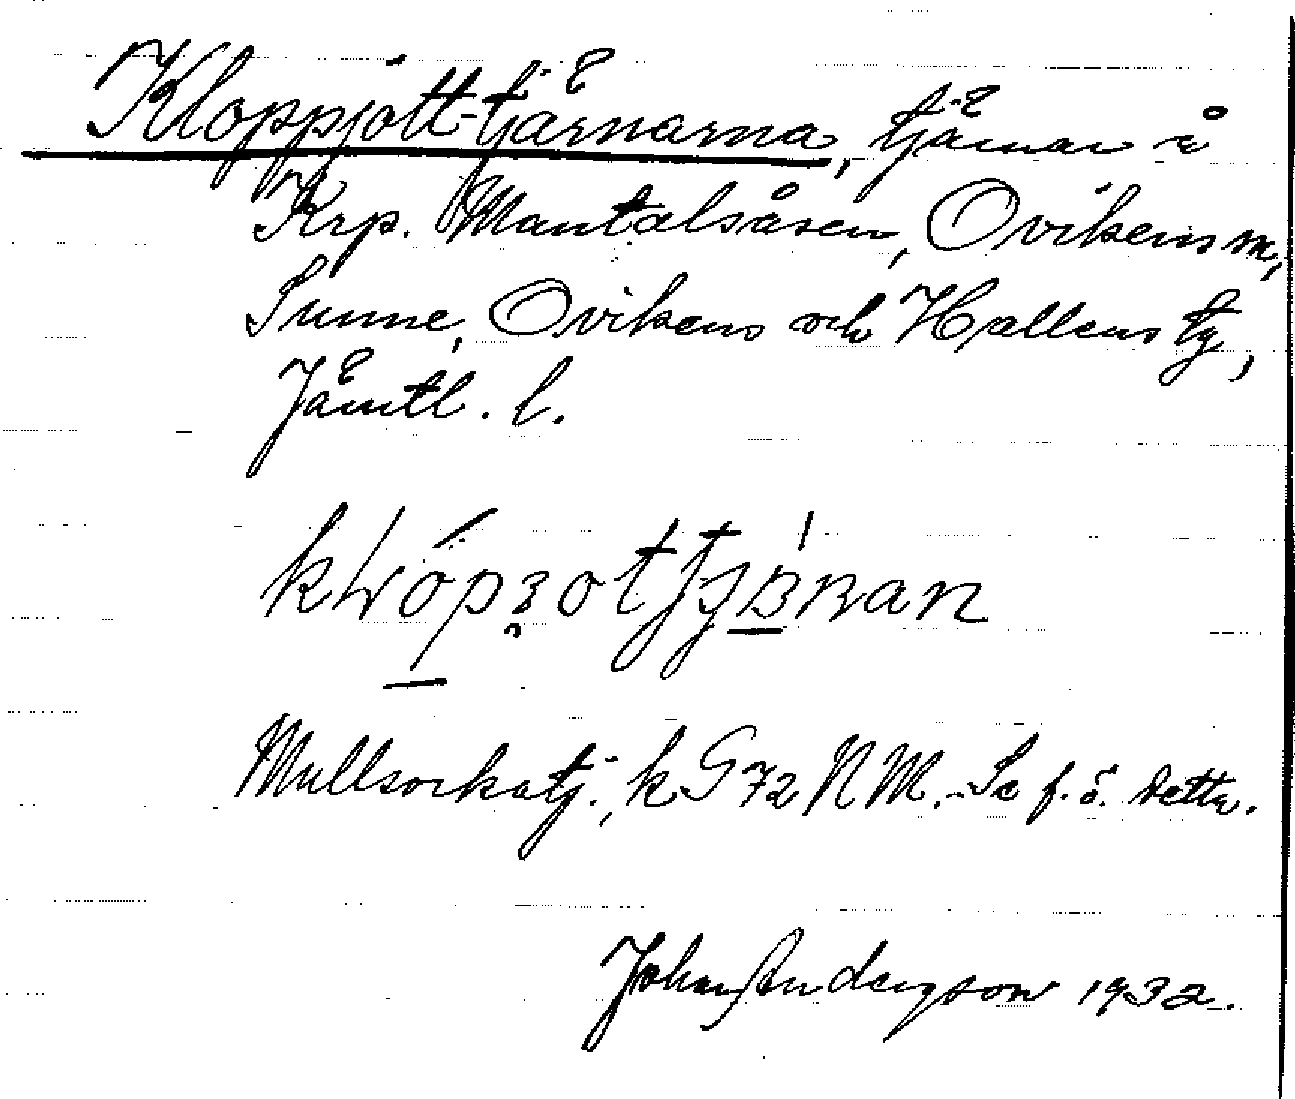 Kloppjött-tjärnarna, tjärnar å
Krp. Mantalsåsen, Ovikens sn,
Sunne, Ovikens och Hallens tg,
Jämtl. l.
Mullsorkatj., k G 72 NM. Se f. ö. detta.
Johan Andersson 1932.